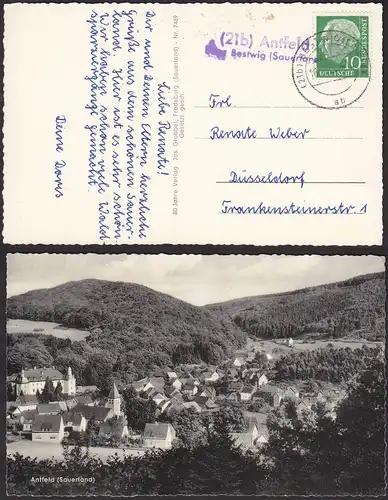 Liebe Renate!
Dir und Deinen Eltern herzliche
Grüße aus dem schönen Sauer-
land. Hier ist es sehr schön.
Wir haben schon viele Wald-
spaziergänge gemacht.
Deine Doris
80 Jahre Verlag Jos. Grobbel, Fredeburg (Sauerland) Nr. 7469
Gesetzl. gesch.
(21b) Antfeld
Bestwig (Sauerland
(21b)
ab
DEUTSCHE BUNDESPOST
10
Frl.
Renate Weber
Düsseldorf
Frankensteinerstr. 1
Antfeld (Sauerland)